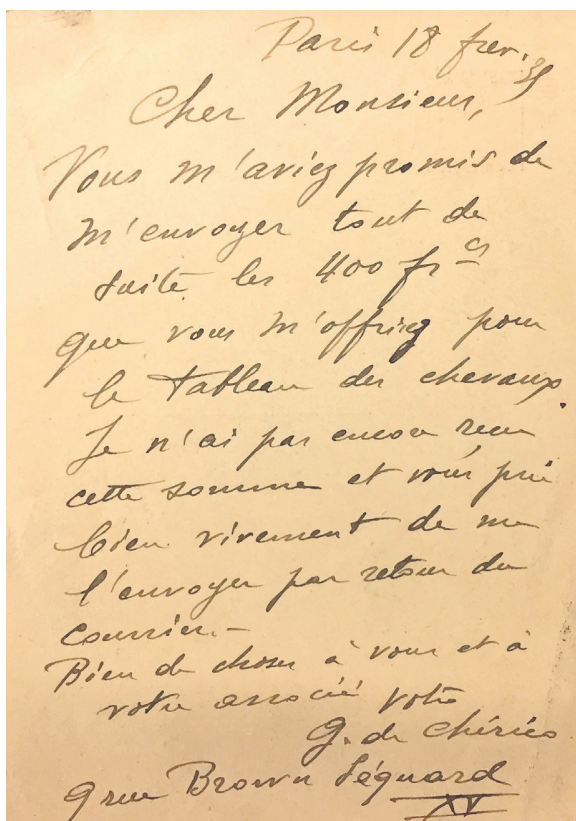 Paris 18 fev. 35
Cher Monsieur,
Vous m'aviez promis de
m'envoyer tout de
suite les 400 frcs
que vous m'offriez pour
le tableau des chevaux.
Je n'ai pas encore recu
cette somme et vous prie
bien vivement de me
l'envoyer par retour du
courrier.-
Bien de choses à vous et à
votre associé votre
G. de Chirico
9 rue Brown Séquard
XV